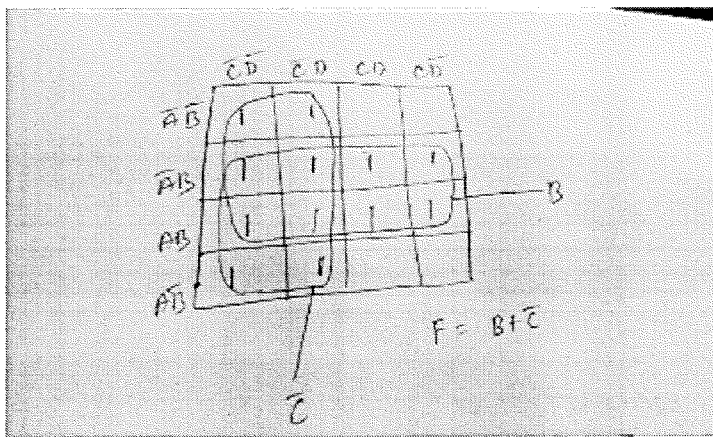 C̅D̅ C̅D CD CD̅
A̅B̅ 1 1
A̅B 1 1 1 1
B
AB 1 1 1 1
AB̅ 1 1
F = B+C̅
C̅